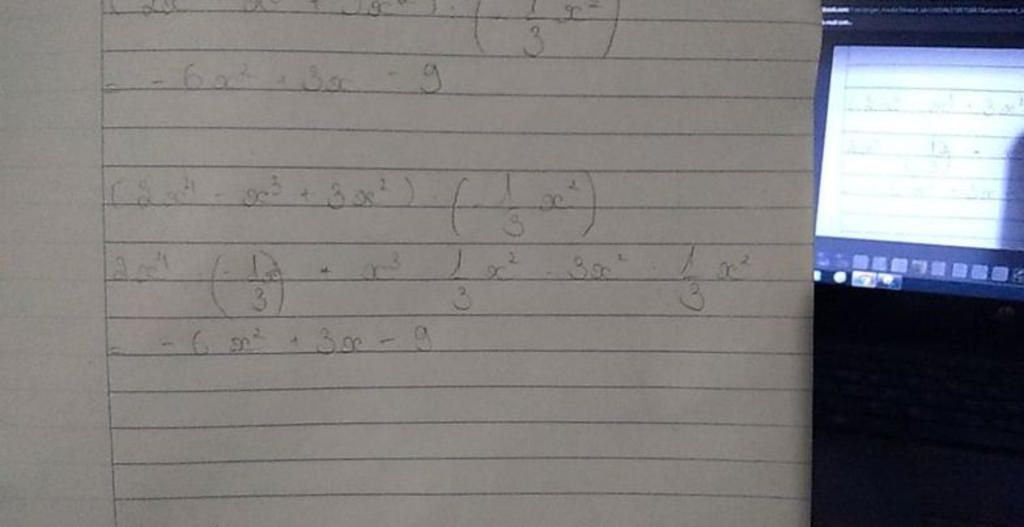 (2x⁴ - x³ + 3x²) · (-1/3 x²)
= -6x² + 3x - 9
(2x⁴ - x³ + 3x²) · (-1/3 x²)
2x⁴ · (-1/3 x²) + x³ 1/3 x² - 3x² · 1/3 x²
= -6x² + 3x - 9